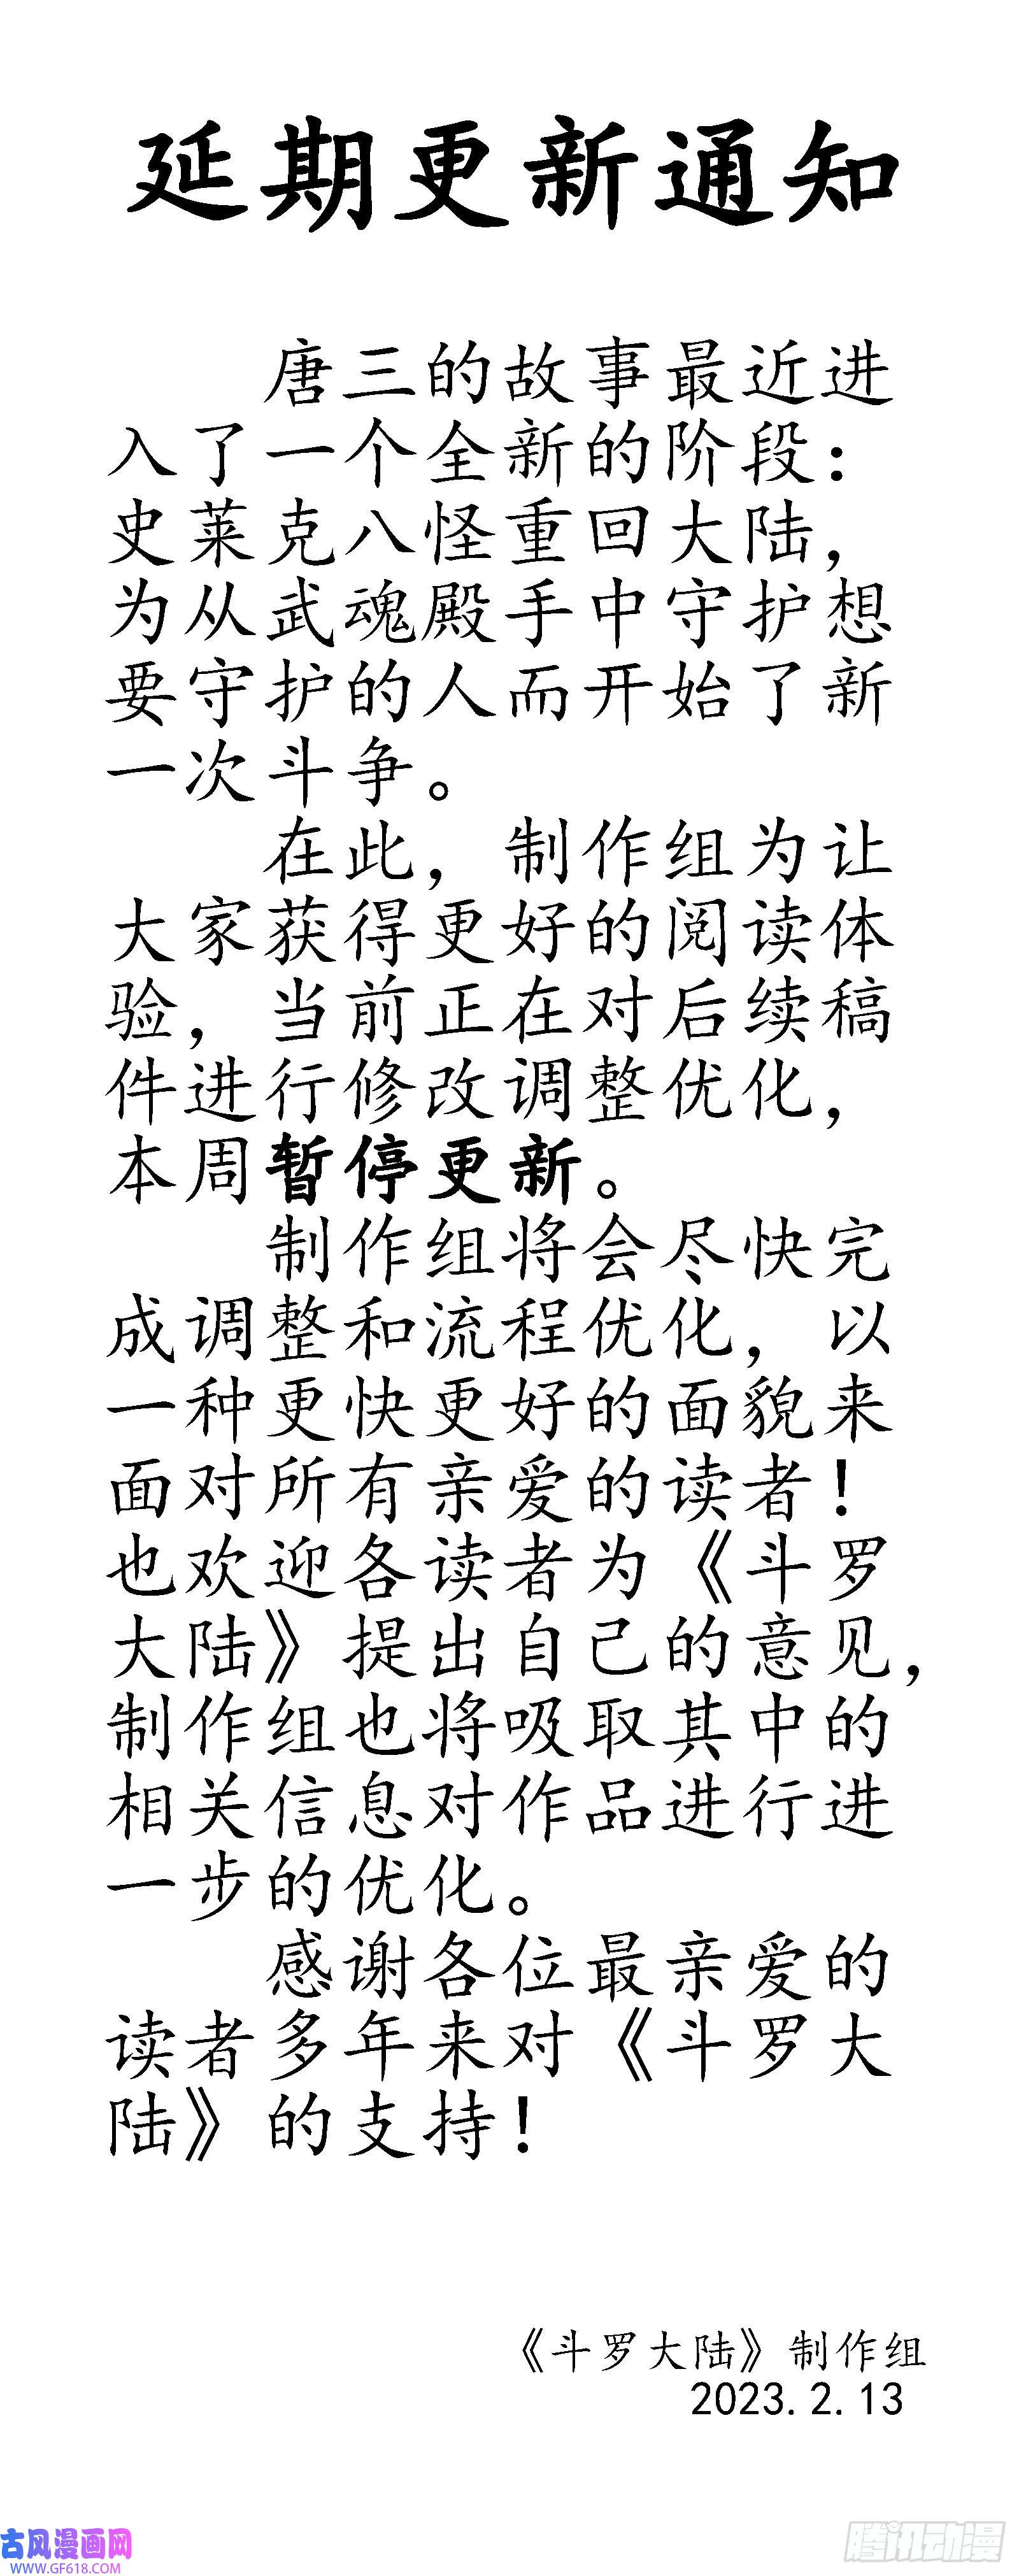 延期更新通知
唐三的故事最近进
入了一个全新的阶段：
史莱克八怪重回大陆，
为从武魂殿手中守护想
要守护的人而开始了新
一次斗争。
在此，制作组为让
大家获得更好的阅读体
验，当前正在对后续稿
件进行修改调整优化，
本周暂停更新。
制作组将会尽快完
成调整和流程优化，以
一种更快更好的面貌来
面对所有亲爱的读者！
也欢迎各读者为《斗罗
大陆》提出自己的意见，
制作组也将吸取其中的
相关信息对作品进行进
一步的优化。
感谢各位最亲爱的
读者多年来对《斗罗大
陆》的支持！
《斗罗大陆》制作组
2023.2.13
古风漫画网
WWW.GF618.COM
腾讯动漫